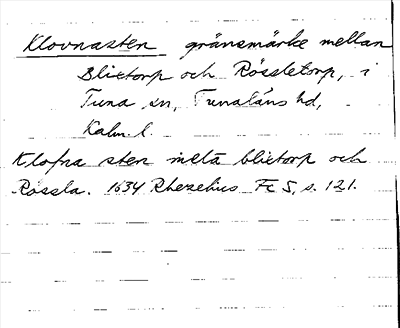 Klovnasten gränsmärke mellan
Blietorp och Rössletorp, i
Tuna sn, Tunaläns hd,
Kalm. l.
Klofna sten mellā blietorp och
Rössla. 1634 Rhezelius Fc 5, s. 121.